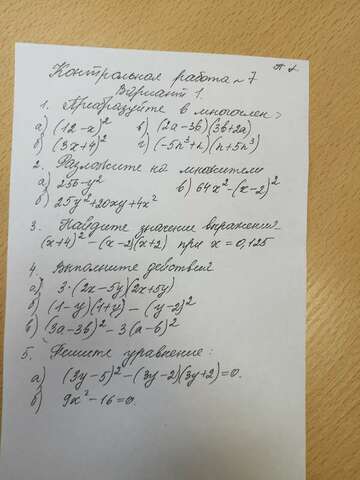 Контрольная работа № 7
Вариант 1.
1. Преобразуйте в многочлен
а) (12-x)² в) (2a-3b)(3b+2a)
б) (3x+4)² г) (-5n³+n)(n+5n³)
2. Разложите на множители
а) 256-y² в) 64x²-(x-2)²
б) 25y²+20xy+4x²
3. Найдите значение выражения
(x+4)²-(x-2)(x+2) при x=0,125
4. Выполните действия
а) 3·(2x-5y)(2x+5y)
б) (1-y)(1+y)-(y-2)²
в) (3a-3b)²-3(a-b)²
5. Решите уравнение:
а) (3y-5)²-(3y-2)(3y+2)=0.
б) 9x²-16=0.